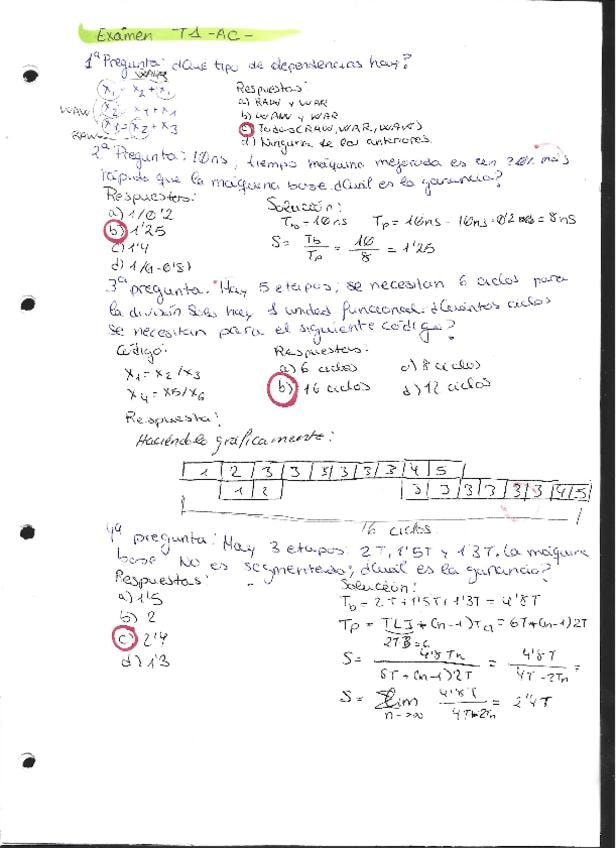 Exámen T1 -AC-
1ª Pregunta: ¿Qué tipo de dependencias hay?
WAR
x1 = x2 + x1
WAW x2 = x1 + x1
RAW x1 = x2 + x3
Respuestas:
a) RAW y WAR
b) WAW y WAR
c) Todas (RAW, WAR, WAW)
d) Ninguna de las anteriores
2ª Pregunta: 10ns, tiempo máquina mejorada es un 20% más
rápido que la máquina base ¿Cuál es la ganancia?
Respuestas:
a) 1/0'2
b) 1'25
c) 1'4
d) 1/(1-0'8)
Solución:
Tb = 10ns Tp = 10ns - 10ns·0'2 = 8ns
S = Tb/Tp = 10/8 = 1'25
3ª pregunta: Hay 5 etapas; se necesitan 6 ciclos para
la división Solo hay 1 unidad funcional. ¿Cuántos ciclos
se necesitan para el siguiente código?
Código:
x1 = x2/x3
x4 = x5/x6
Respuestas:
a) 6 ciclos c) 8 ciclos
b) 16 ciclos d) 12 ciclos
Respuesta:
Haciéndolo gráficamente:
1 2 3 3 3 3 3 3 4 5
1 2 3 3 3 3 3 3 4 5
16 ciclos
4ª pregunta: Hay 3 etapas: 2T, 1'5T y 1'3T. La máquina
base No es segmentada; ¿Cuál es la ganancia?
Respuestas:
a) 1'5
b) 2
c) 2'4
d) 1'3
Solución:
Tb = 2T + 1'5T + 1'3T = 4'8T
Tp = TLI + (n-1)Ta = 6T + (n-1)2T
S = 4'8Tn / 6T + (n-1)2T = 4'8T / 4T - 2Tn =
S = lim n->∞ 4'8T / 4T + 2Tn = 2'4T